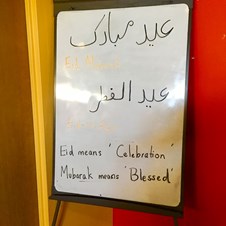 عيد مبارك
Eid Mubarak
عيد الفطر
Eid means 'Celebration'
Mubarak means 'Blessed'